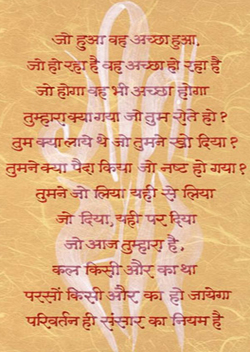 जो हुआ वह अच्छा हुआ,
जो हो रहा है वह अच्छा हो रहा है
जो होगा वह भी अच्छा होगा
तुम्हारा क्या गया जो तुम रोते हो ?
तुम क्या लाये थे जो तुमने खो दिया ?
तुमने क्या पैदा किया जो नष्ट हो गया ?
तुमने जो लिया यहीं से लिया
जो दिया, यहीं पर दिया
जो आज तुम्हारा है,
कल किसी और का था
परसों किसी और का हो जायेगा
परिवर्तन ही संसार का नियम है